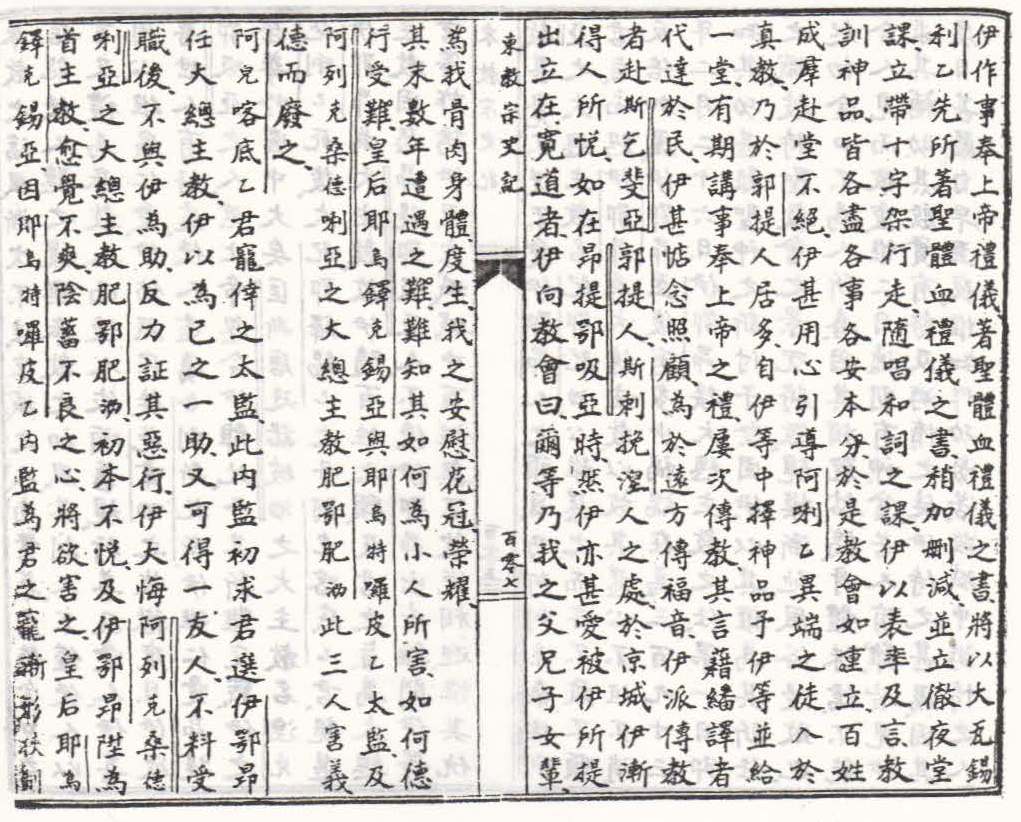 伊作事奉上帝禮儀、著聖體血禮儀之書、將以大瓦錫
利乙先所著聖體血禮儀之書、稍加刪減、並立徹夜堂
課、立帶十字架行走、隨唱和詞之課、伊以表率及言教
訓神品皆各盡各事各安本分、於是教會如建立、百姓
成羣赴堂不絕、伊甚用心引導阿唎乙異端之徒入於
真教、乃於郭提人居多、自伊等中擇神品予伊等、並給
一堂、有期講事奉上帝之禮、屢次傳教、其言藉繙譯者
代達於民、伊甚惦念照顧、為於遠方傳福音、伊派傳教
者赴斯乞斐亞郭提人斯剌挽湼人之處、於京城伊漸
得人所悅、如在昂提鄂吸亞時、然伊亦甚愛被伊所提
出立在寛道者、伊向教會曰、爾等乃我之父兄子女輩、
東教宗史記
百零七
為我骨肉身體、度生、我之安慰花冠榮耀、
其末數年遭遇之難、難知其如何為小人所害、如何德
行受難、皇后耶烏鐸克錫亞與耶烏特囉皮乙太監及
阿列克桑德唎亞之大總主教肥鄂肥泐此三人害義
德而廢之、
阿兒喀底乙君寵倖之太監、此内監初求君選伊鄂昂
任大總主教、伊以為己之一助、又可得一友人、不料受
職後、不與伊為助、反力証其惡行、伊大悔、阿列克桑德
唎亞之大總主教肥鄂肥泐、初本不悅、及伊鄂昂陞為
首主教、愈覺不爽、陰蓄不良之心、將欲害之、皇后耶烏
鐸克錫亞因耶烏特囉皮乙内監為君之寵